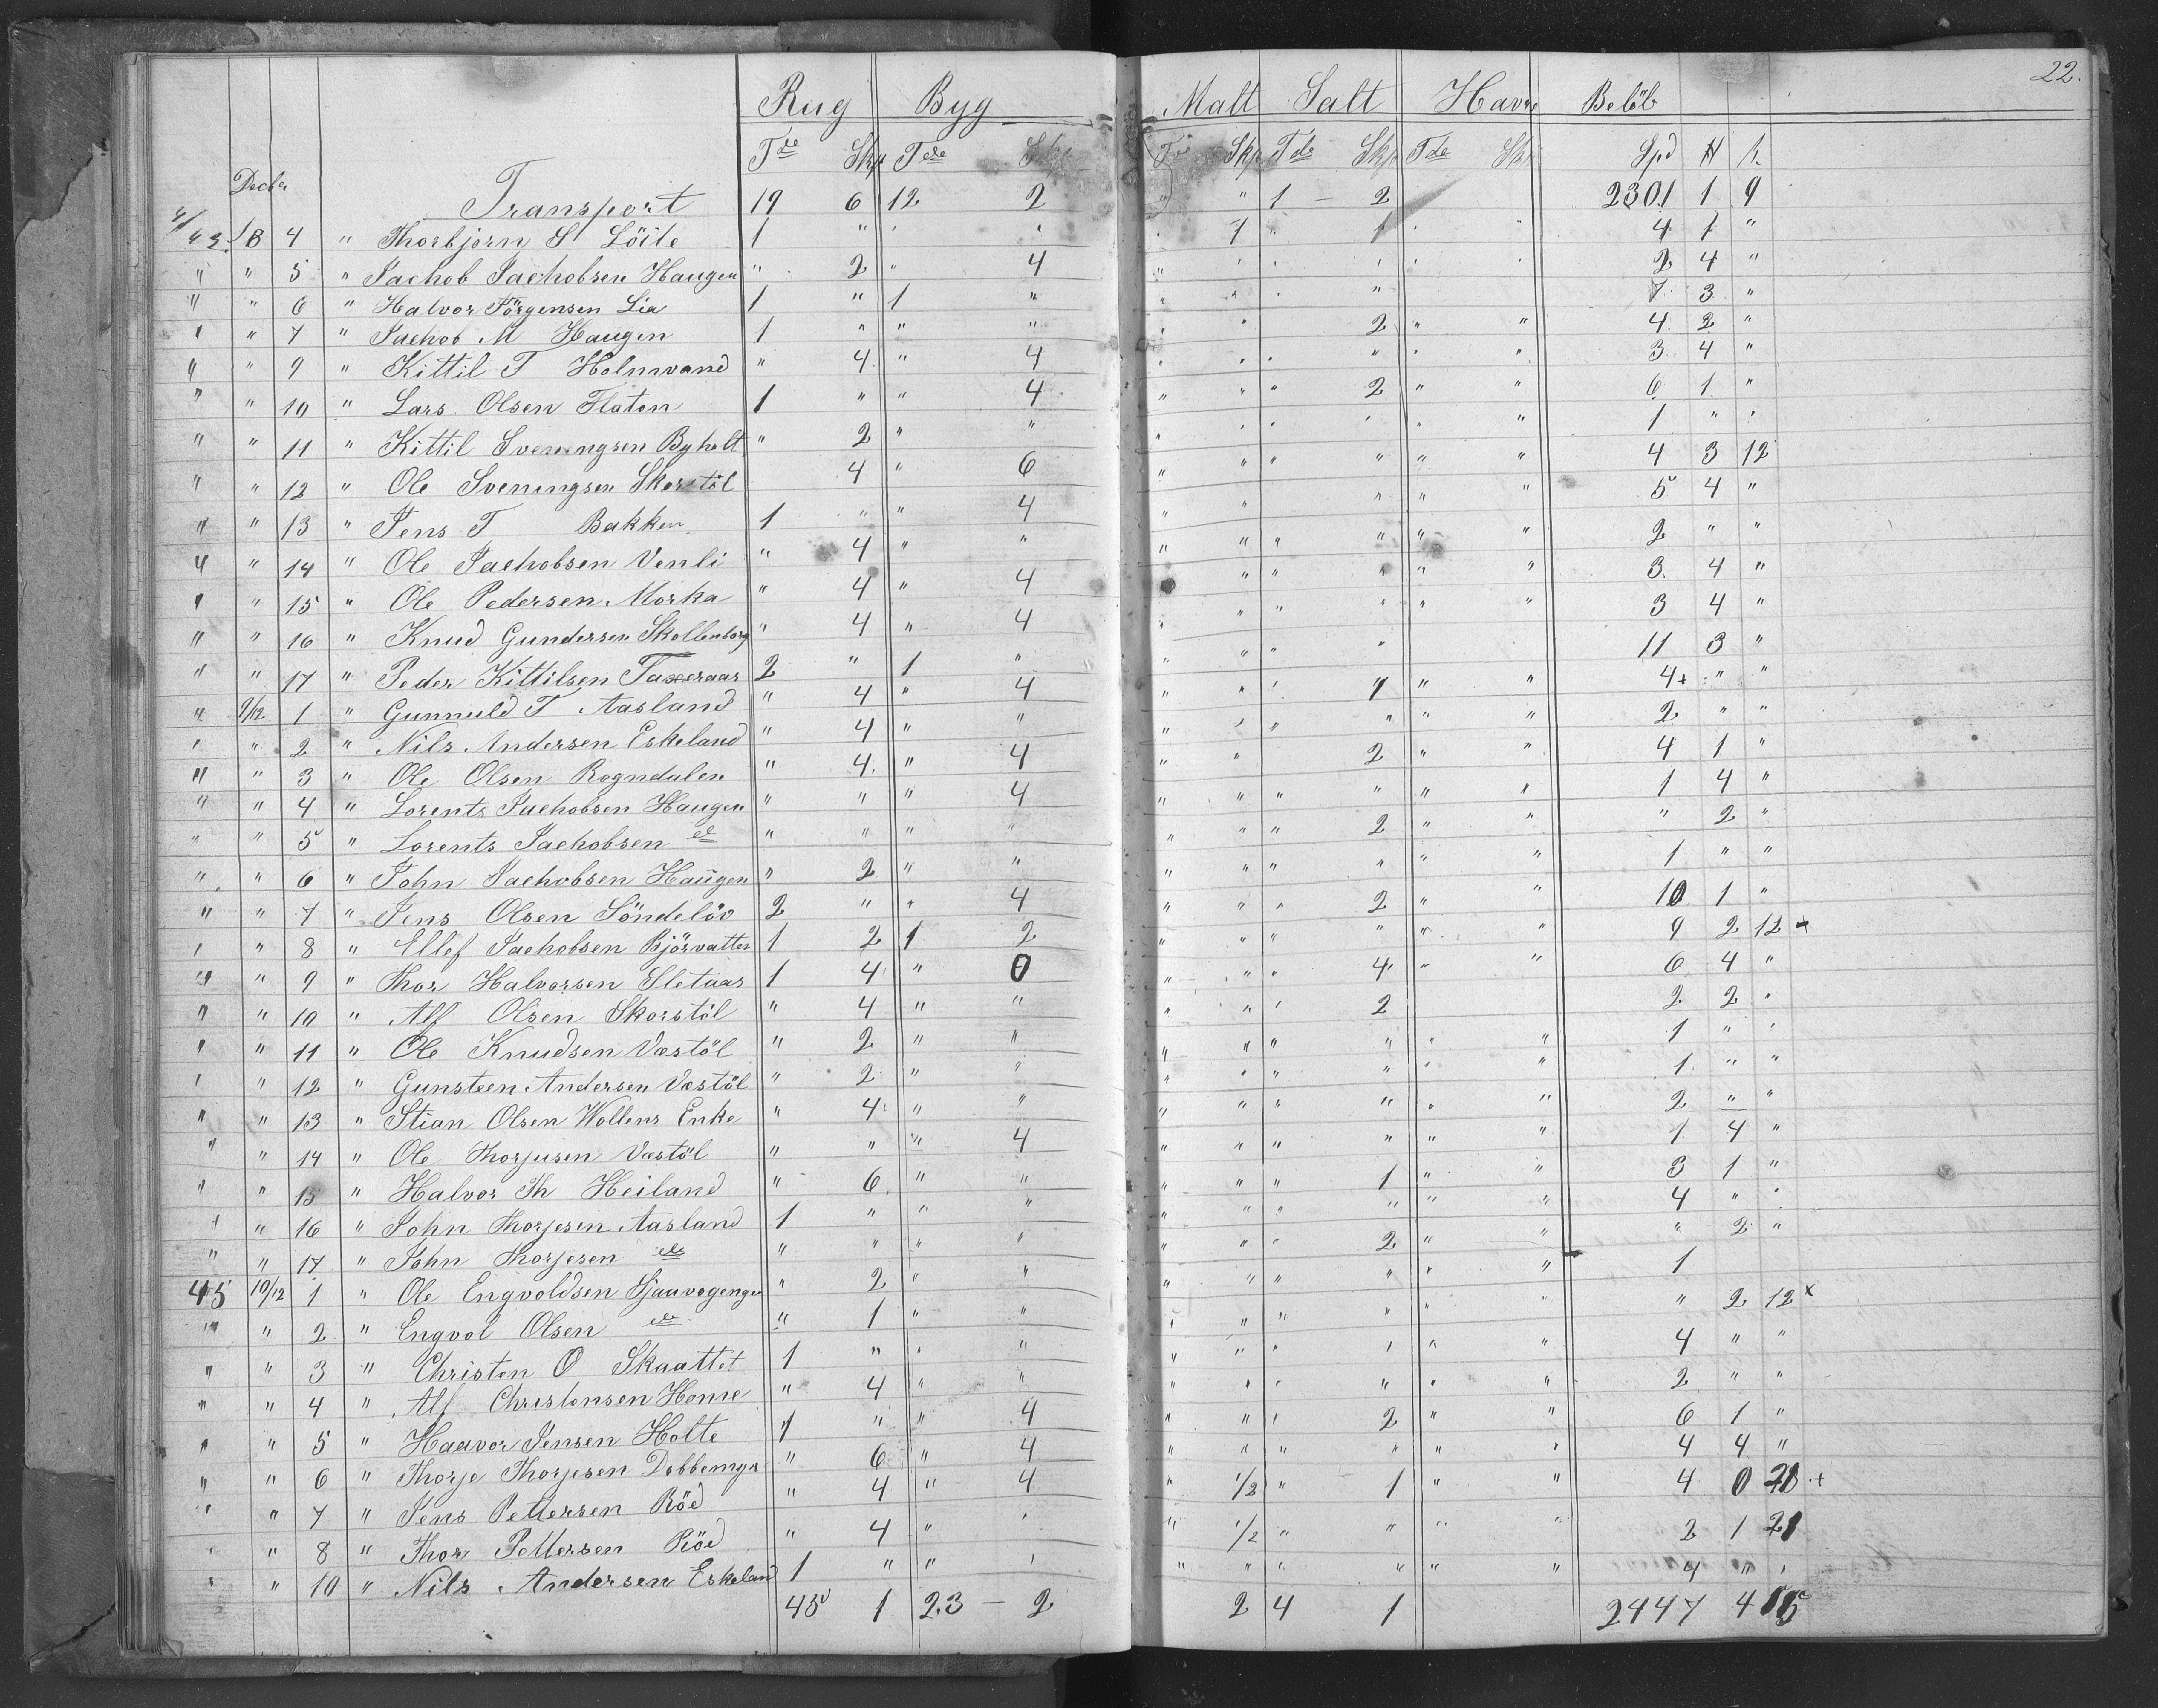 22.
Rug Byg Malt Salt Havre Belöb
Tde Skp Tde Skp Tde Skp Tde Skp Tde Skp Spd
Decbr Transport 19 6 12 2 " " 1 - 2 2301 1 9
18 4 " Thorbjörn S Löite 1 " " " 4 1 "
" " 5 " Jachob Jachobsen Haugen " 2 " 4 2 4 "
" " 6 " Halvor Jörgensen Lia 1 " 1 " 7 3 "
" " 7 " Jachob M Haugen 1 " " " 2 " " 4 2 "
" " 9 " Kittil T Holmvand " 4 " 4 3 4 "
" " 10 " Lars Olsen Flaten 1 " " 4 " " " 2 " " 6 1 "
" " 11 " Kittil Sveningsen Byholt " 2 " " 1 " "
" " 12 " Ole Sveningsen Skorstöl 4 " 6 " " " " " " 4 3 12
" " 13 " Jens T Bakken 1 " " 4 " " " " " 5 4 "
" " 14 " Ole Jachobsen Venli " 4 " " " " " " " " 2 " "
" " 15 " Ole Pedersen Morka " 4 " 4 " " " " " 3 4 "
" " 16 " Knud Gundersen Skollenborg " 4 " 4 " " " " " 3 4 "
" " 17 " Peder Kittilsen Taxeraas 2 " 1 " " " " " 11 3 "
" 9/12 1 " Gunnuld T Aasland " 4 " 4 " " " 1 " " 4+ " "
" " 2 " Nils Andersen Eskeland " 4 " " " " " " " " 2 " "
" " 3 " Ole Olsen Rogndalen " 4 " 4 " " 2 " " 4 1 "
" " 4 " Lorents Jachobsen Haugen " " " 4 " " " " " " 1 4 "
" " 5 " Lorents Jachobsen do " " " " " " " 2 " " " 2 "
" " 6 " John Jachobsen Haugen " 2 " " " " " " " " 1 " "
" " 7 " Jens Olsen Söndelöv 2 " " 4 " " " 2 " " 10 1 "
" " 8 " Ellef Jachobsen Björvatten 1 2 1 2 " " " " " " 9 2 12 +
" " 9 " Thor Halvorsen Sletaas 1 4 " 0 " " " 4 " " 6 4 "
" " 10 " Alf Olsen Skorstöl " 4 " " " " " 2 2 2 "
" " 11 " Ole Knudsen Vastöl " 2 " " " " " " " " 1 " "
" " 12 " Gunsteen Andersen Vastöl " 2 " " " " " " " " 1 " "
" " 13 " Stian Olsen Wollens Enke " 4 " " " " " " " " 2 " "
" " 14 " Ole Thorjusen Vastöl " " " 4 " " " " " " 1 4 "
" " 15 " Halvor Th Heiland " 6 " " " " " 1 " " 3 1 "
" " 16 " John Thorjesen Aasland 1 " " " " " " " " " 4 " "
" " 17 " John Thorjesen do " " " " " " " 2 " " " 2 "
45 10/12 1 " Ole Engvoldsen " 2 " " " " " " " " 1
" " 2 " Engvol Olsen do " 1 " " " " " " " " " 2 12 x
" " 3 " Christen O Skaattet 1 " " " " " " " " " 4 " "
" " 4 " Alf Christensen Home " 4 " " " " " " " " 2 " "
" " 5 " Haavor Jensen Holte 1 " " 4 " " " 2 " " 6 1 "
" " 6 " Thorje Thorjesen Dobbemyr " 6 " 4 " " " " " " 4 4 "
" " 7 " Jens Pettersen Röd " 4 " 4 " 1/2 " 1 " " 4 0 +
" " 8 " Thor Pettersen Röd " 4 " " " 1/2 " " " " 2 1 21
" " 10 " Nils Andersen Eskeland 1 " " " " " " " " " 4 " "
45 1 23 - 2 2 4 1 2447 4